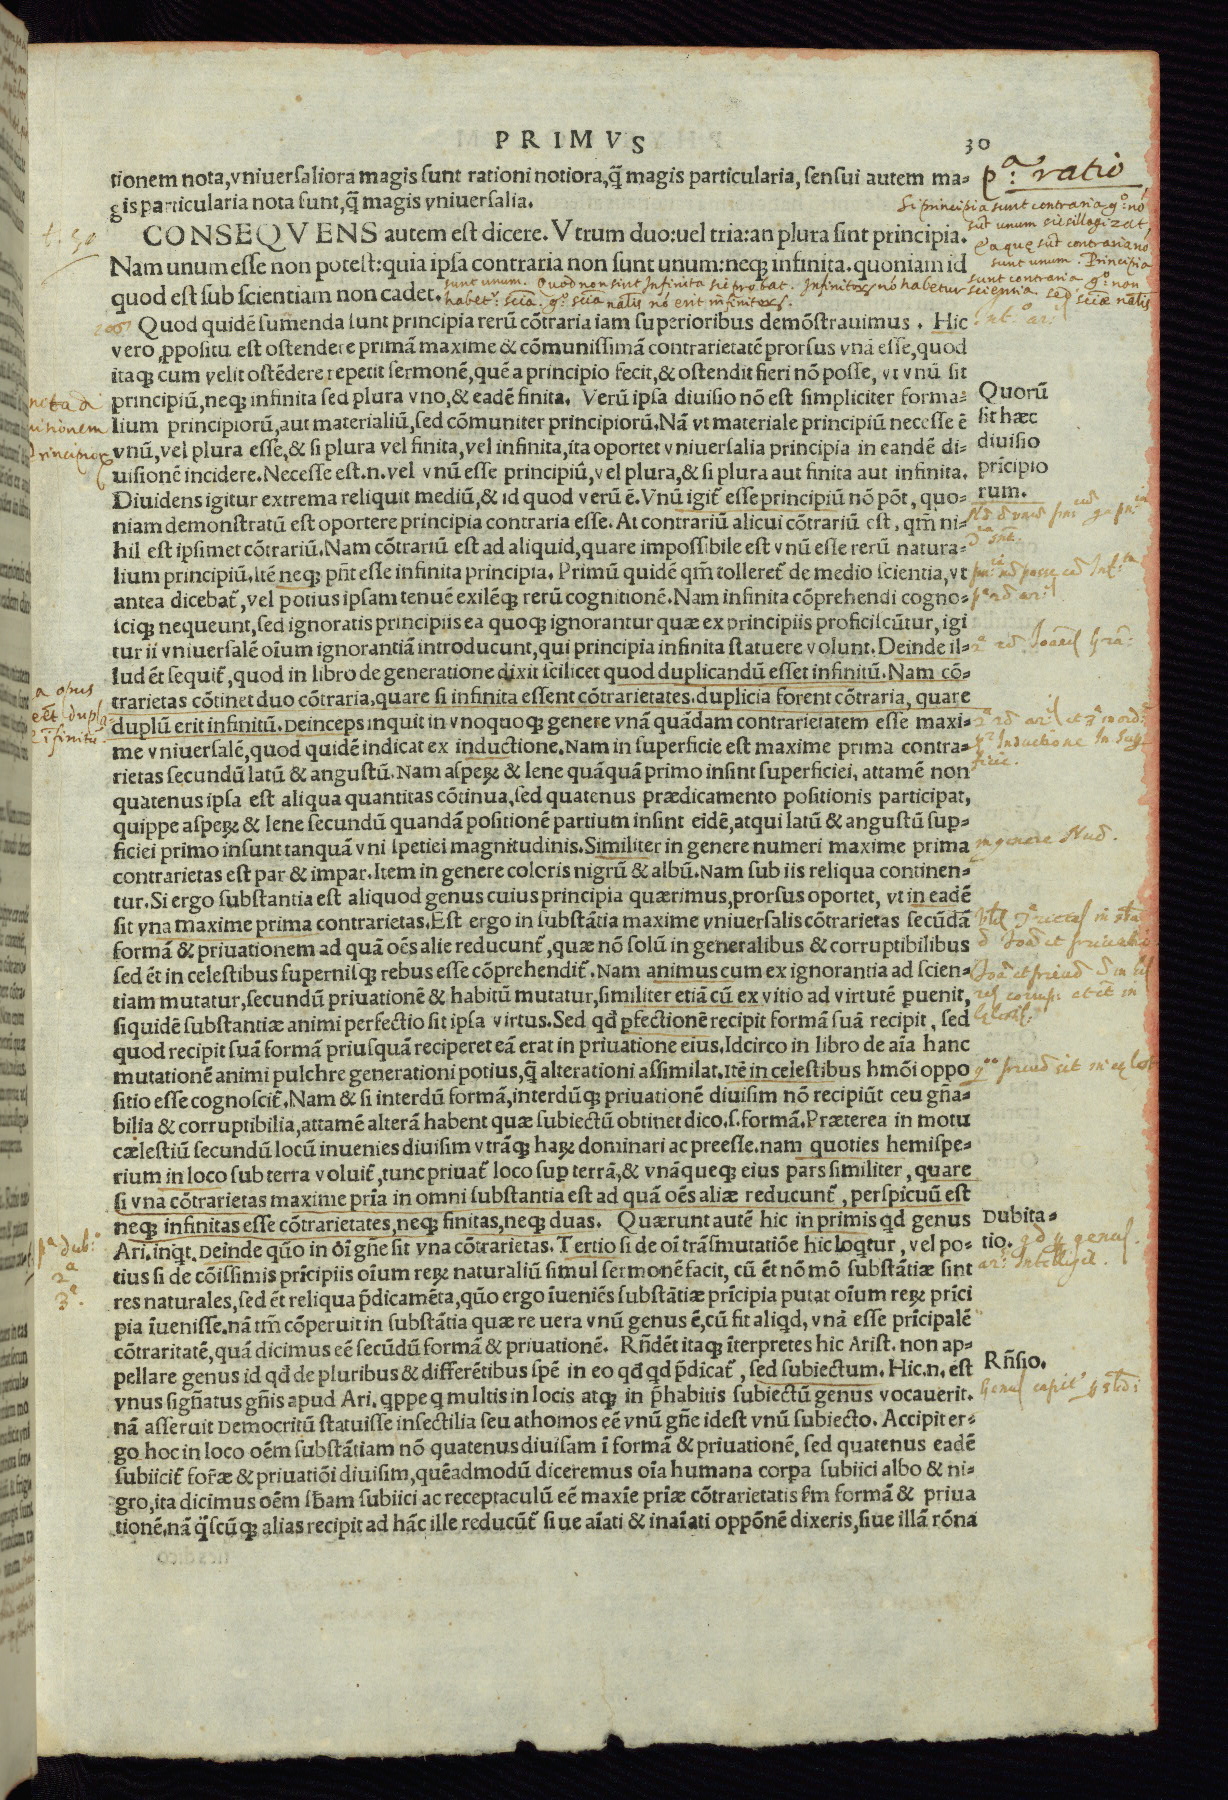 PRIMVS 30
tionem nota,vniuersaliora magis sunt rationi notiora,q̃ magis particularia, sensui autem ma-
gis particularia nota sunt,q̃ magis vniuersalia.
CONSEQVENS autem est dicere. Vtrum duo:uel tria:an plura sint principia.
Nam unum esse non potest:quia ipsa contraria non sunt unum:neqꝫ infinita.quoniam id
quod est sub scientiam non cadet.
Quod quidẽ sumenda sunt principia rerũ cõtraria iam superioribus demõstrauimus . Hic
vero ꝓpositu est ostendere primã maxime & cõmunissimã contrarietatẽ prorsus vnã esse,quod
itaqꝫ cum velit ostẽdere repetit sermonẽ,quẽ a principio fecit,& ostendit fieri nõ posse, vt vnũ sit
principiũ,neqꝫ infinita sed plura vno,& eadẽ finita. Verũ ipsa diuisio nõ est simpliciter forma-
lium principiorũ,aut materialiũ,sed cõmuniter principiorũ.Nã vt materiale principiũ necesse ẽ
vnũ,vel plura esse,& si plura vel finita,vel infinita,ita oportet vniuersalia principia in eandẽ di-
uisionẽ incidere.Necesse est.n.vel vnũ esse principiũ,vel plura,& si plura aut finita aut infinita.
Diuidens igitur extrema reliquit mediũ,& id quod verũ ẽ.Vnũ igit᷑ esse principiũ nõ põt, quo-
niam demonstratũ est oportere principia contraria esse. At contrariũ alicui cõtrariũ est, qm̃ ni-
hil est ipsimet cõtrariũ.Nam cõtrariũ est ad aliquid,quare impossibile est vnũ esse rerũ natura-
lium principiũ.Itẽ neqꝫ pñt esse infinita principia. Primũ quidẽ qm̃ tolleret᷑ de medio scientia,vt
antea dicebat᷑,vel potius ipsam tenuẽ exilẽqꝫ rerũ cognitionẽ.Nam infinita cõprehendi cogno-
sciqꝫ nequeunt,sed ignoratis principiis ea quoqꝫ ignorantur quæ ex principiis proficiscũtur, igi
tur ii vniuersalẽ oĩum ignorantiã introducunt,qui principia infinita statuere volunt.Deinde il-
lud ẽt sequit᷑,quod in libro de generatione dixit scilicet quod duplicandũ esset infinitũ.Nam cõ-
trarietas cõtinet duo cõtraria,quare si infinita essent cõtrarietates.duplicia forent cõtraria, quare
duplũ erit infinitũ.Deinceps inquit in vnoquoqꝫ genere vnã quãdam contrarietatem esse maxi-
me vniuersalẽ,quod quidẽ indicat ex inductione.Nam in superficie est maxime prima contra-
rietas secundũ latũ & angustũ.Nam asperꝫ & lene quãquã primo insint superficiei, attamẽ non
quatenus ipsa est aliqua quantitas cõtinua,sed quatenus prædicamento positionis participat,
quippe asperꝫ & lene secundũ quandã positionẽ partium insint eidẽ,atqui latũ & angustũ sup-
ficiei primo insunt tanquã vni spetiei magnitudinis.Similiter in genere numeri maxime prima
contrarietas est par & impar.Item in genere coloris nigrũ & albũ.Nam sub iis reliqua continen-
tur.Si ergo substantia est aliquod genus cuius principia quærimus,prorsus oportet, vt in eadẽ
sit vna maxime prima contrarietas.Est ergo in substãtia maxime vniuersalis cõtrarietas secũdã
formã & priuationem ad quã oẽs alie reducunt᷑,quæ nõ solũ in generalibus & corruptibilibus
sed ẽt in celestibus supernisqꝫ rebus esse cõprehendit᷑.Nam animus cum ex ignorantia ad scien-
tiam mutatur,secundũ priuationẽ & habitũ mutatur,similiter etiã cũ ex vitio ad virtutẽ puenit,
siquidẽ substantiæ animi perfectio sit ipsa virtus.Sed qđ ꝑfectionẽ recipit formã suã recipit, sed
quod recipit suã formã priusquã reciperet eã erat in priuatione eius.Idcirco in libro de aĩa hanc
mutationẽ animi pulchre generationi potius,q̃ alterationi assimilat.Itẽ in celestibus hmõi oppo
sitio esse cognoscit᷑.Nam & si interdũ formã,interdũqꝫ priuationẽ diuisim nõ recipiũt ceu gña-
bilia & corruptibilia,attamẽ alterã habent quæ subiectũ obtinet dico.s.formã.Præterea in motu
cælestiũ secundũ locũ inuenies diuisim vtrãqꝫ harꝫ dominari ac preesse.nam quoties hemispe-
rium in loco sub terra voluit᷑,tunc priuat᷑ loco sup terrã,& vnãqueqꝫ eius pars similiter, quare
si vna cõtrarietas maxime pria in omni substantia est ad quã oẽs aliæ reducunt᷑ , perspicuũ est
neqꝫ infinitas esse cõtrarietates,neqꝫ finitas,neqꝫ duas. Quærunt autẽ hic in primis qd genus
Ari.inqt.Deinde qũo in õi gñe sit vna cõtrarietas. Tertio si de oĩ trãsmutatiõe hic loqtur, vel po-
tius si de cõissimis pricipiis oĩum rerꝫ naturaliũ simul sermonẽ facit, cũ ẽt nõ mõ substãtiæ sint
res naturales,sed ẽt reliqua p̃dicamẽta,qũo ergo ĩueniẽs substãtiæ pricipia putat oĩum rerꝫ prici
pia ĩuenisse.nã tm̃ cõperuit in substãtia quæ re uera vnũ genus ẽ,cũ sit aliqd, vnã esse pricipalẽ
cõtraritatẽ,quã dicimus eẽ secũdũ formã & priuationẽ. Rñdẽt itaqꝫ ĩterpretes hic Arist. non ap-
pellare genus id qđ de pluribus & differẽtibus spẽ in eo qđ qd p̃dicat᷑ , sed subiectum. Hic.n. est
vnus signatus gñis apud Ari. qppe q multis in locis atqꝫ in p̃habitis subiectũ genus vocauerit.
nã asseruit Democritũ statuisse insectilia seu athomos eẽ vnũ gñe idest vnũ subiecto. Accipit er-
go hoc in loco oẽm substãtiam nõ quatenus diuisam ĩ formã & priuationẽ, sed quatenus eadẽ
subiicit᷑ foræ & priuatiõi diuisim,quẽadmodũ diceremus oĩa humana corpa subiici albo & ni-
gro,ita dicimus oẽm sbam subiici ac receptaculũ eẽ maxie priæ cõtrarietatis fm formã & priua
tionẽ.nã q̃scũqꝫ alias recipit ad hãc ille reducũt᷑ siue aĩati & inaĩati oppõnẽ dixeris,siue illã rõna
Quorũ
sit hæc
diuisio
pricipio
rum.
Dubita-
tio.
Rñsio.
pᵃ: ratio
Si principia sunt contraria gᵒ: nõ
sũt unum
sunt unum. Principia
sunt contraria. gᵒ: non
sunt unum. Quod non sint Infinita sic probat. Infinitorꝫ nõ habetur scientia
in genere